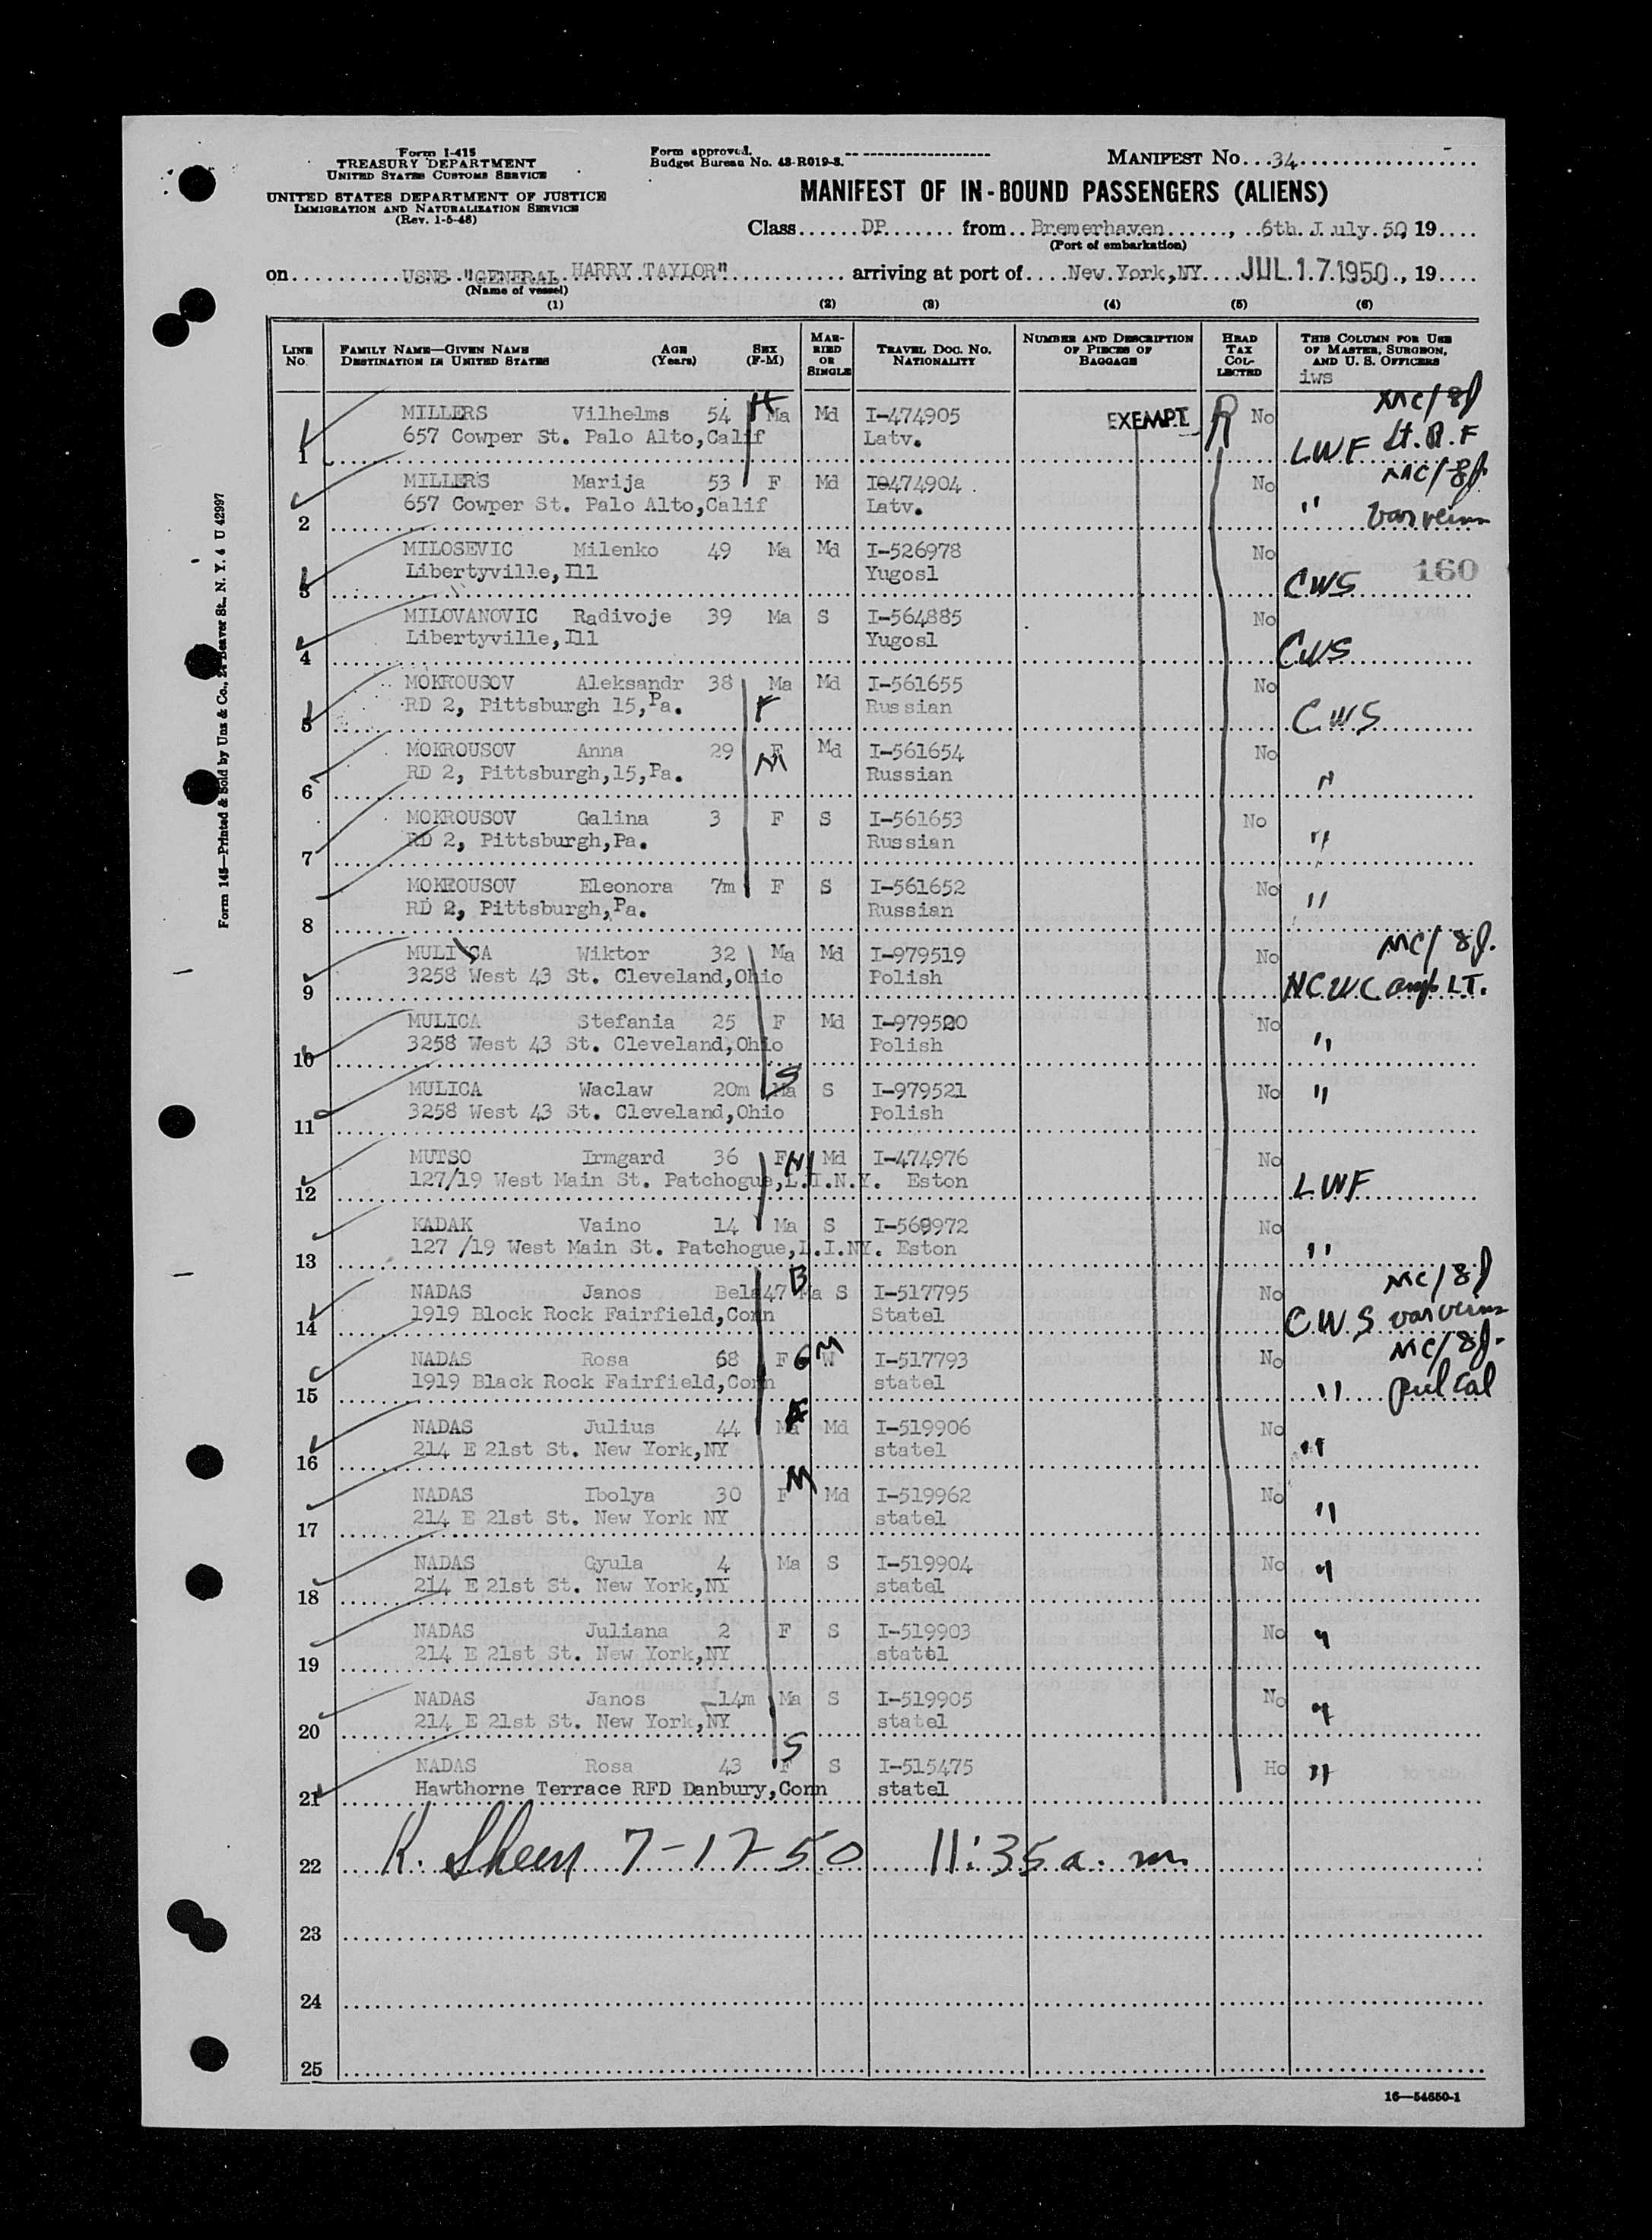 Form I-415
TREASURY DEPARTMENT
UNITED STATES CUSTOMS SERVICE
UNITED STATES DEPARTMENT OF JUSTICE
IMMIGRATION AND NATURALIZATION SERVICE
(Rev. 1-5-48)
Form approved.
Budget Bureau No. 43-R019-3.
MANIFEST No. 34
MANIFEST OF IN-BOUND PASSENGERS (ALIENS)
Class DP from Bremerhaven, 6th. July. 50, 19
(Port of embarkation)
on USNS "GENERAL HARRY TAYLOR" arriving at port of New York,NY JUL 17 1950, 19
(Name of vessel)
(1) (2) (3) (4) (5) (6)
LINE NO. FAMILY NAME—GIVEN NAME DESTINATION IN UNITED STATES AGE (Years) SEX (F-M) MARRIED OR SINGLE TRAVEL DOC. NO. NATIONALITY NUMBER AND DESCRIPTION OF PIECES OF BAGGAGE HEAD TAX COLLECTED THIS COLUMN FOR USE OF MASTER, SURGEON, AND U. S. OFFICERS
iws
MILLERS Vilhelms 54 Ma Md I-474905 EXEMPT R No MC/8f
1 657 Cowper St. Palo Alto,Calif Latv. LWF Lt. R. F
MILLERS Marija 53 F Md I0474904 No MC/8f.
2 657 Cowper St. Palo Alto,Calif Latv. " var veins
MILOSEVIC Milenko 49 Ma Md I-526978 No
3 Libertyville,Ill Yugosl CWS 160
MILOVANOVIC Radivoje 39 Ma S I-564885 No
4 Libertyville,Ill Yugosl CWS
MOKROUSOV Aleksandr 38 Ma Md I-561655 No
5 RD 2, Pittsburgh 15,Pa. F Russian CWS
MOKROUSOV Anna 29 F Md I-561654 No
6 RD 2, Pittsburgh,15,Pa. M Russian "
MOKROUSOV Galina 3 F S I-561653 No
7 RD 2, Pittsburgh,Pa. Russian "
MOKROUSOV Eleonora 7m F S I-561652 No
8 RD 2, Pittsburgh,Pa. Russian "
MULICA Wiktor 32 Ma Md I-979519 No MC/8f.
9 3258 West 43 St. Cleveland,Ohio Polish NCWC amp LT.
MULICA Stefania 25 F Md I-979520 No
10 3258 West 43 St. Cleveland,Ohio Polish "
MULICA Waclaw 20m Ma S S I-979521 No "
11 3258 West 43 St. Cleveland,Ohio Polish
MUTSO Irmgard 36 F Md I-474976 No
12 127/19 West Main St. Patchogue,L.I.N.Y. Eston LWF
KADAK Vaino 14 Ma S I-568972 No
13 127 /19 West Main St. Patchogue,L.I.NY. Eston "
NADAS Janos Bela 47 B Ma S I-517795 No MC/8f
14 1919 Block Rock Fairfield,Conn Statel CWS var veins
NADAS Rosa 68 F GM W I-517793 No MC/8f.
15 1919 Black Rock Fairfield,Conn statel " pul cal
NADAS Julius 44 F Ma Md I-519906 No
16 214 E 21st St. New York,NY statel "
NADAS Ibolya 30 F M Md I-519962 No
17 214 E 21st St. New York NY statel "
NADAS Gyula 4 Ma S I-519904 No
18 214 E 21st St. New York,NY statel "
NADAS Juliana 2 F S I-519903 No
19 214 E 21st St. New York,NY statel "
NADAS Janos 14m Ma S I-519905 No
20 214 E 21st St. New York,NY statel "
NADAS Rosa 43 F S S I-515475 Ho
21 Hawthorne Terrace RFD Danbury,Conn statel "
22 K. 7-17-50 11:35 a. m.
23
24
25
16—54650-1
Form 145—Printed & Sold by Unz & Co., 24 Beaver St., N. Y. 4 U 42997